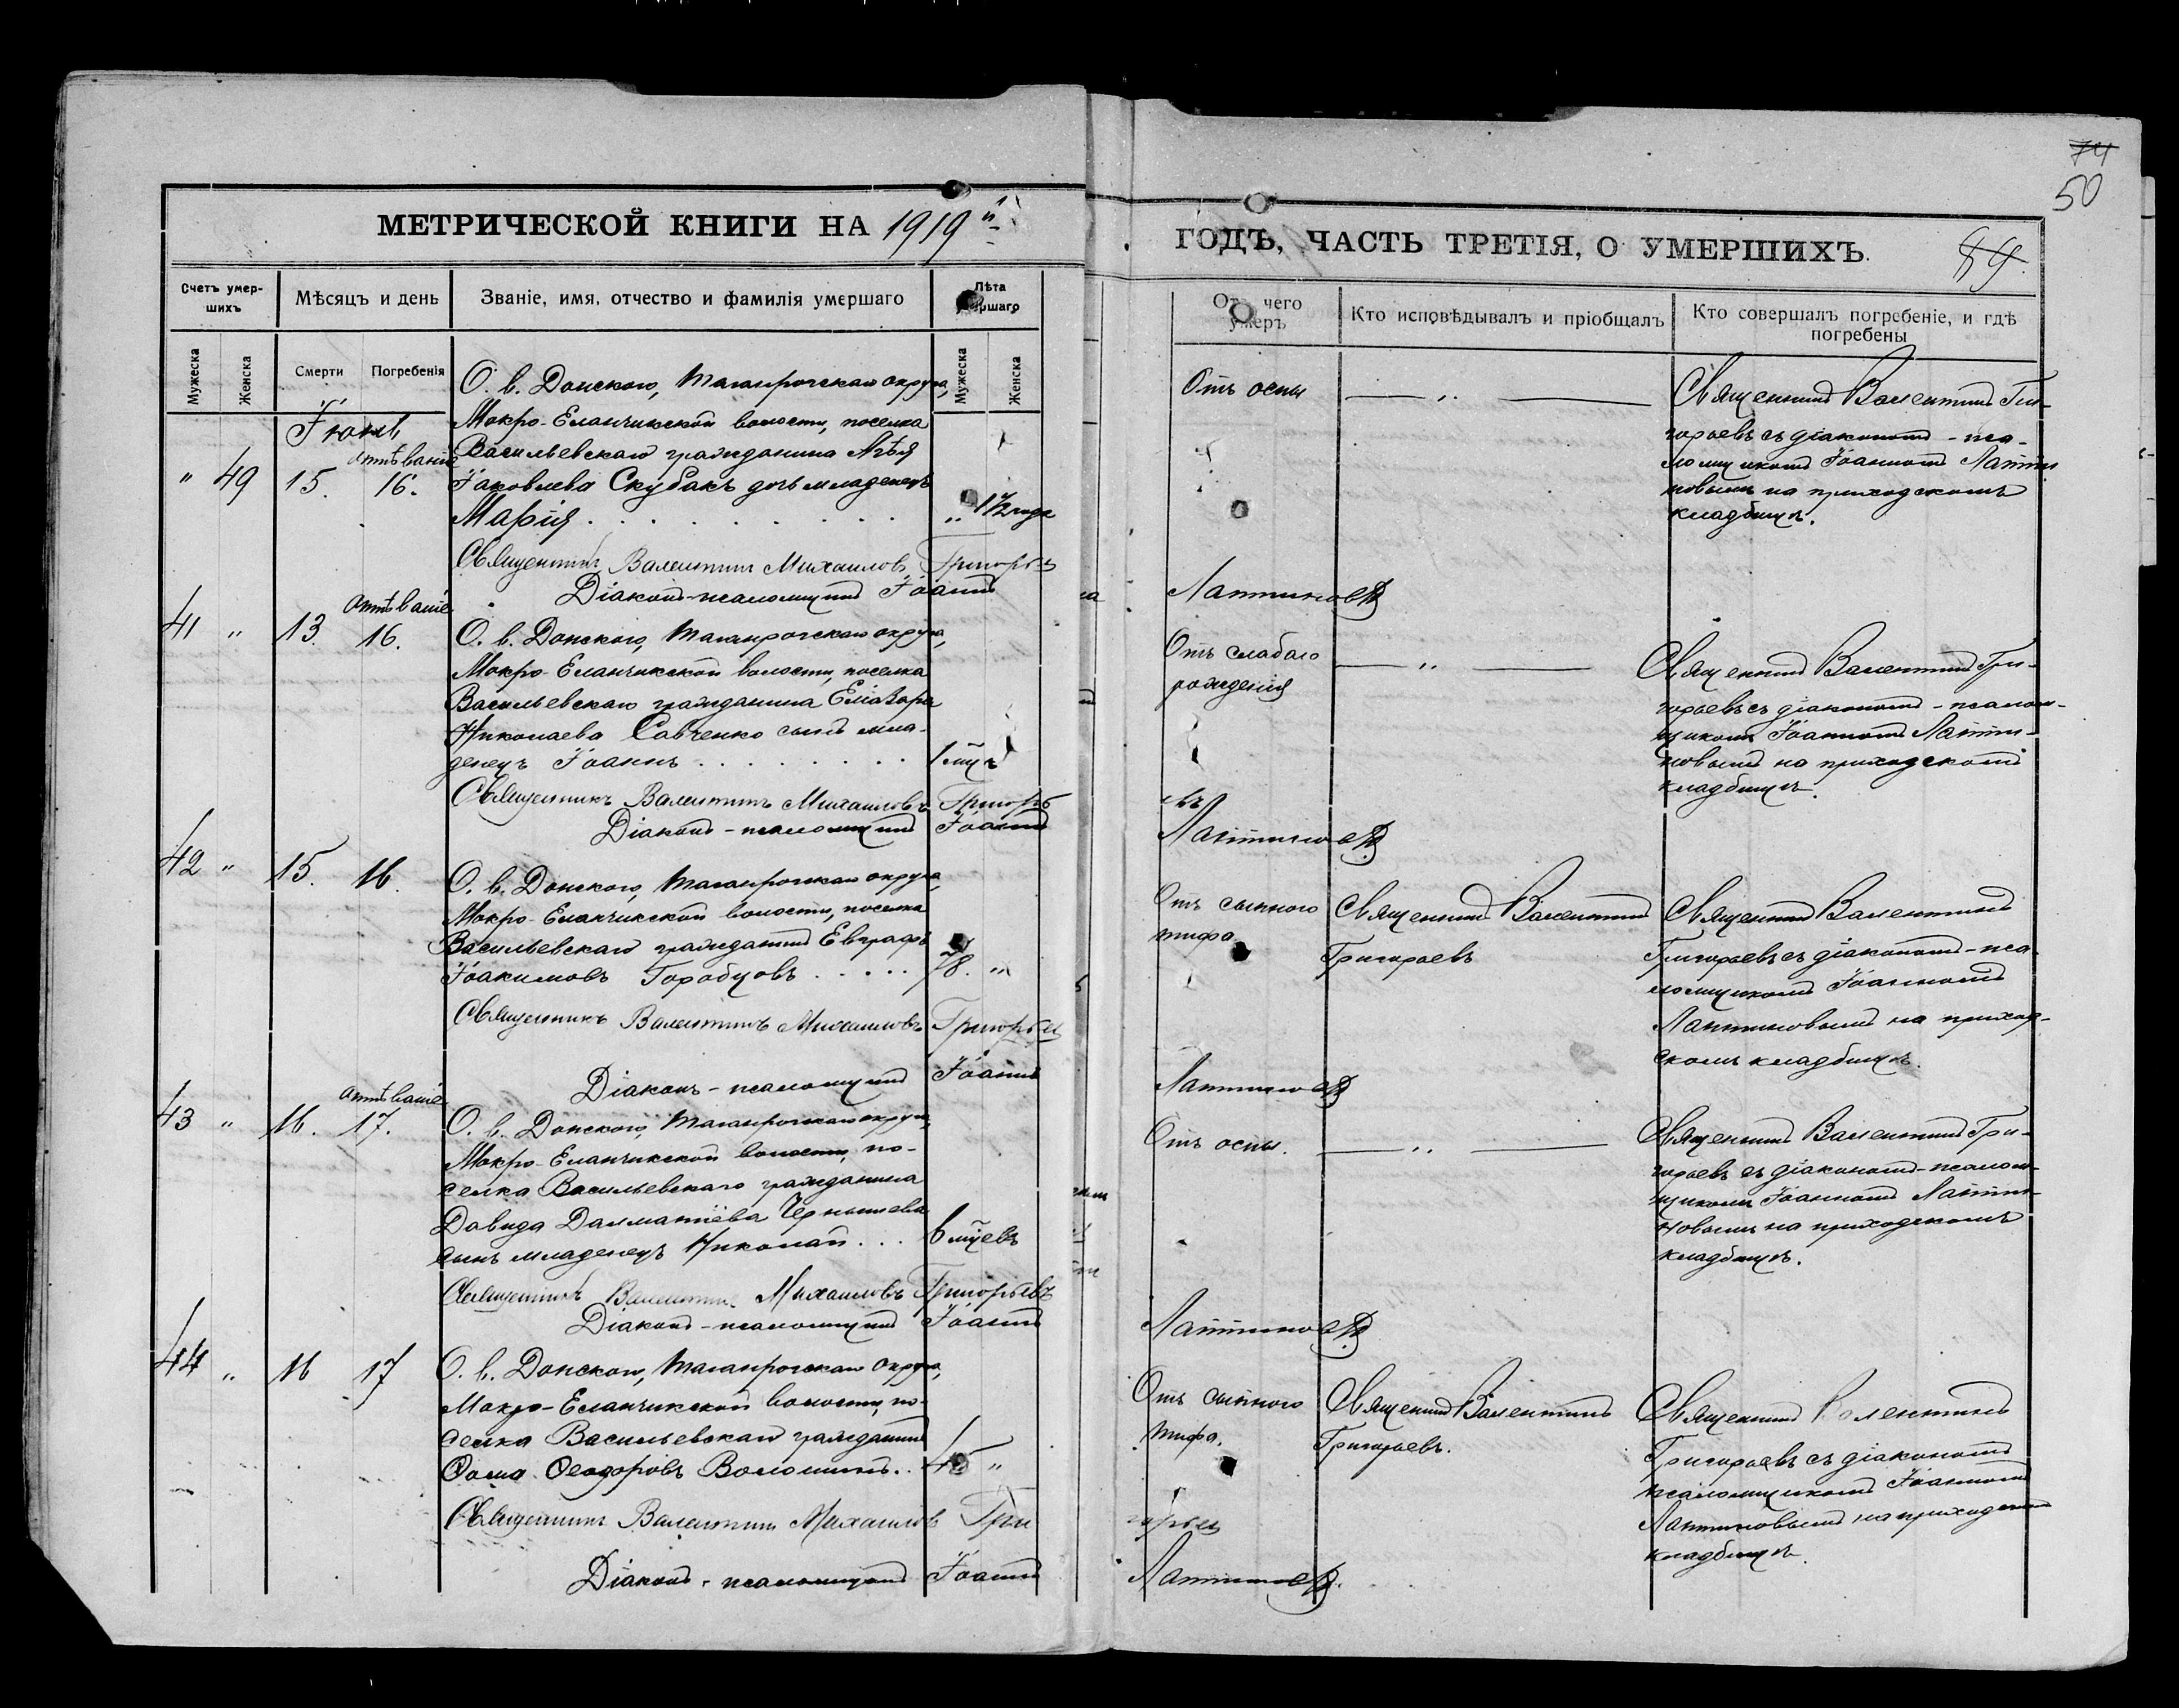 74
50
МЕТРИЧЕСКОЙ КНИГИ НА 1919 й
ГОДЪ, ЧАСТЬ ТРЕТІЯ, О УМЕРШИХЪ.
Счетъ умер-
шихъ
Мѣсяцъ и день
Званіе, имя, отчество и фамилія умершаго
Лѣта
умершаго
Отъ чего
умеръ
Кто исповѣдывалъ и пріобщалъ
Кто совершалъ погребеніе, и гдѣ
погребены
Мужеска
Женска
Смерти
Погребенія
Мужеска
Женска
О. в. Донского, Таганрогскаго округа,
Мокро-Еланчикской волости, поселка
Васильевскаго гражданина
Іаковлева Скубакъ дочь младенецъ
Марія
Іюнь
отпѣваніе
" 49 15. 16.
" 1½ года
Отъ оспы
— " —
Священникъ Валентинъ Гри-
горьевъ съ діакономъ - пса-
ломщикомъ Іоанномъ Лапти-
новымъ на приходскомъ
кладбищѣ.
Священникъ Валентинъ Михаиловъ Григорьевъ
Діаконъ-псаломщикъ Іоаннъ Лаптиновъ
отпѣваніе
41 " 13. 16.
О. в. Донского, Таганрогскаго округа,
Мокро-Еланчикской волости, поселка
Васильевскаго гражданина Еліазара
Николаева Савченко сынъ мла-
денецъ Іоаннъ
1 мцъ
Отъ слабаго
рожденія
— " —
Священникъ Валентинъ Гри-
горьевъ съ діакономъ - псалом-
щикомъ Іоанномъ Лапти-
новымъ на приходскомъ
кладбищѣ.
Священникъ Валентинъ Михаиловъ Григорьевъ
Діаконъ - псаломщикъ Іоаннъ Лаптиновъ
42 " 15. 16.
О. в. Донского, Таганрогскаго округа,
Мокро-Еланчикской волости, поселка
Васильевскаго гражданинъ Евграфъ
Іоакимовъ Горобцовъ
78. "
Отъ сыпного
тифа
Священникъ Валентинъ
Григорьевъ
Священникъ Валентинъ
Григорьевъ съ діакономъ - пса-
ломщикомъ Іоанномъ
Лаптиновымъ на приход-
скомъ кладбищѣ.
Священникъ Валентинъ Михаиловъ Григорьевъ
Діаконъ - псаломщикъ Іоаннъ Лаптиновъ
отпѣваніе
43 " 16. 17.
О. в. Донского, Таганрогскаго округа,
Мокро-Еланчикской волости, по-
селка Васильевскаго гражданина
Давида Далматіева Чернышева
сынъ младенецъ Николай
6 мцевъ
Отъ оспы.
— " —
Священникъ Валентинъ Гри-
горьевъ съ діакономъ - псалом-
щикомъ Іоанномъ Лапти-
новымъ на приходскомъ
кладбищѣ.
Священникъ Валентинъ Михаиловъ Григорьевъ
Діаконъ - псаломщикъ Іоаннъ Лаптиновъ
44 " 16 17
О. в. Донского, Таганрогскаго округа,
Мокро-Еланчикской волости, по-
селка Васильевскаго гражданинъ
Ѳома Ѳеодоровъ Волошинъ
"
Отъ сыпного
тифа.
Священникъ Валентинъ
Григорьевъ.
Священникъ Валентинъ
Григорьевъ съ діакономъ
псаломщикомъ Іоанномъ
Лаптиновымъ на приходскомъ
кладбищѣ.
Священникъ Валентинъ Михаиловъ Григорьевъ
Діаконъ - псаломщикъ Іоаннъ Лаптиновъ.